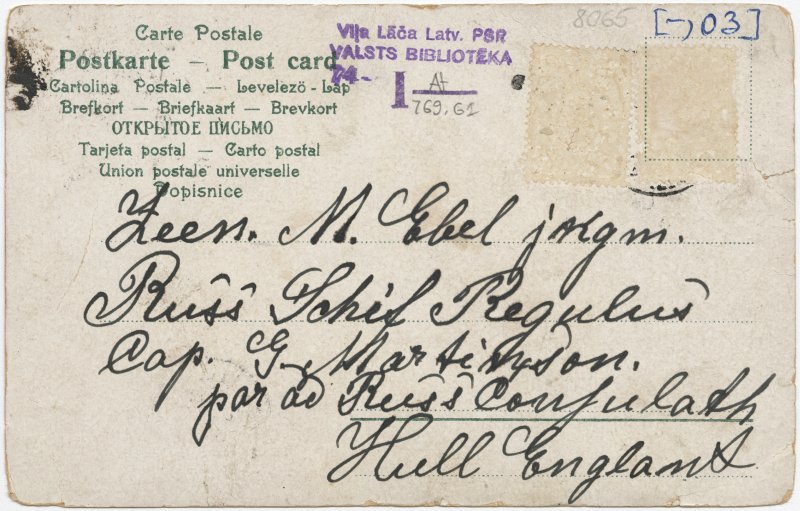 Carte Postale
Postkarte — Post card
Cartolina Postale — Levelezö-Lap
Brefkort — Briefkaart — Brevkort
ОТКРЫТОЕ ПИСЬМО
Tarjeta postal — Carto postal
Union postale universelle
Dopisnice
Viļa Lāča Latv. PSR
VALSTS BIBLIOTĒKA
74-
I At
769,61
8065
[-,03]
Zeen. M. Ebel jkgm.
Russ Schif Regulus
Cap. G. Martinson.
par ad Russ Consulath
Hull England